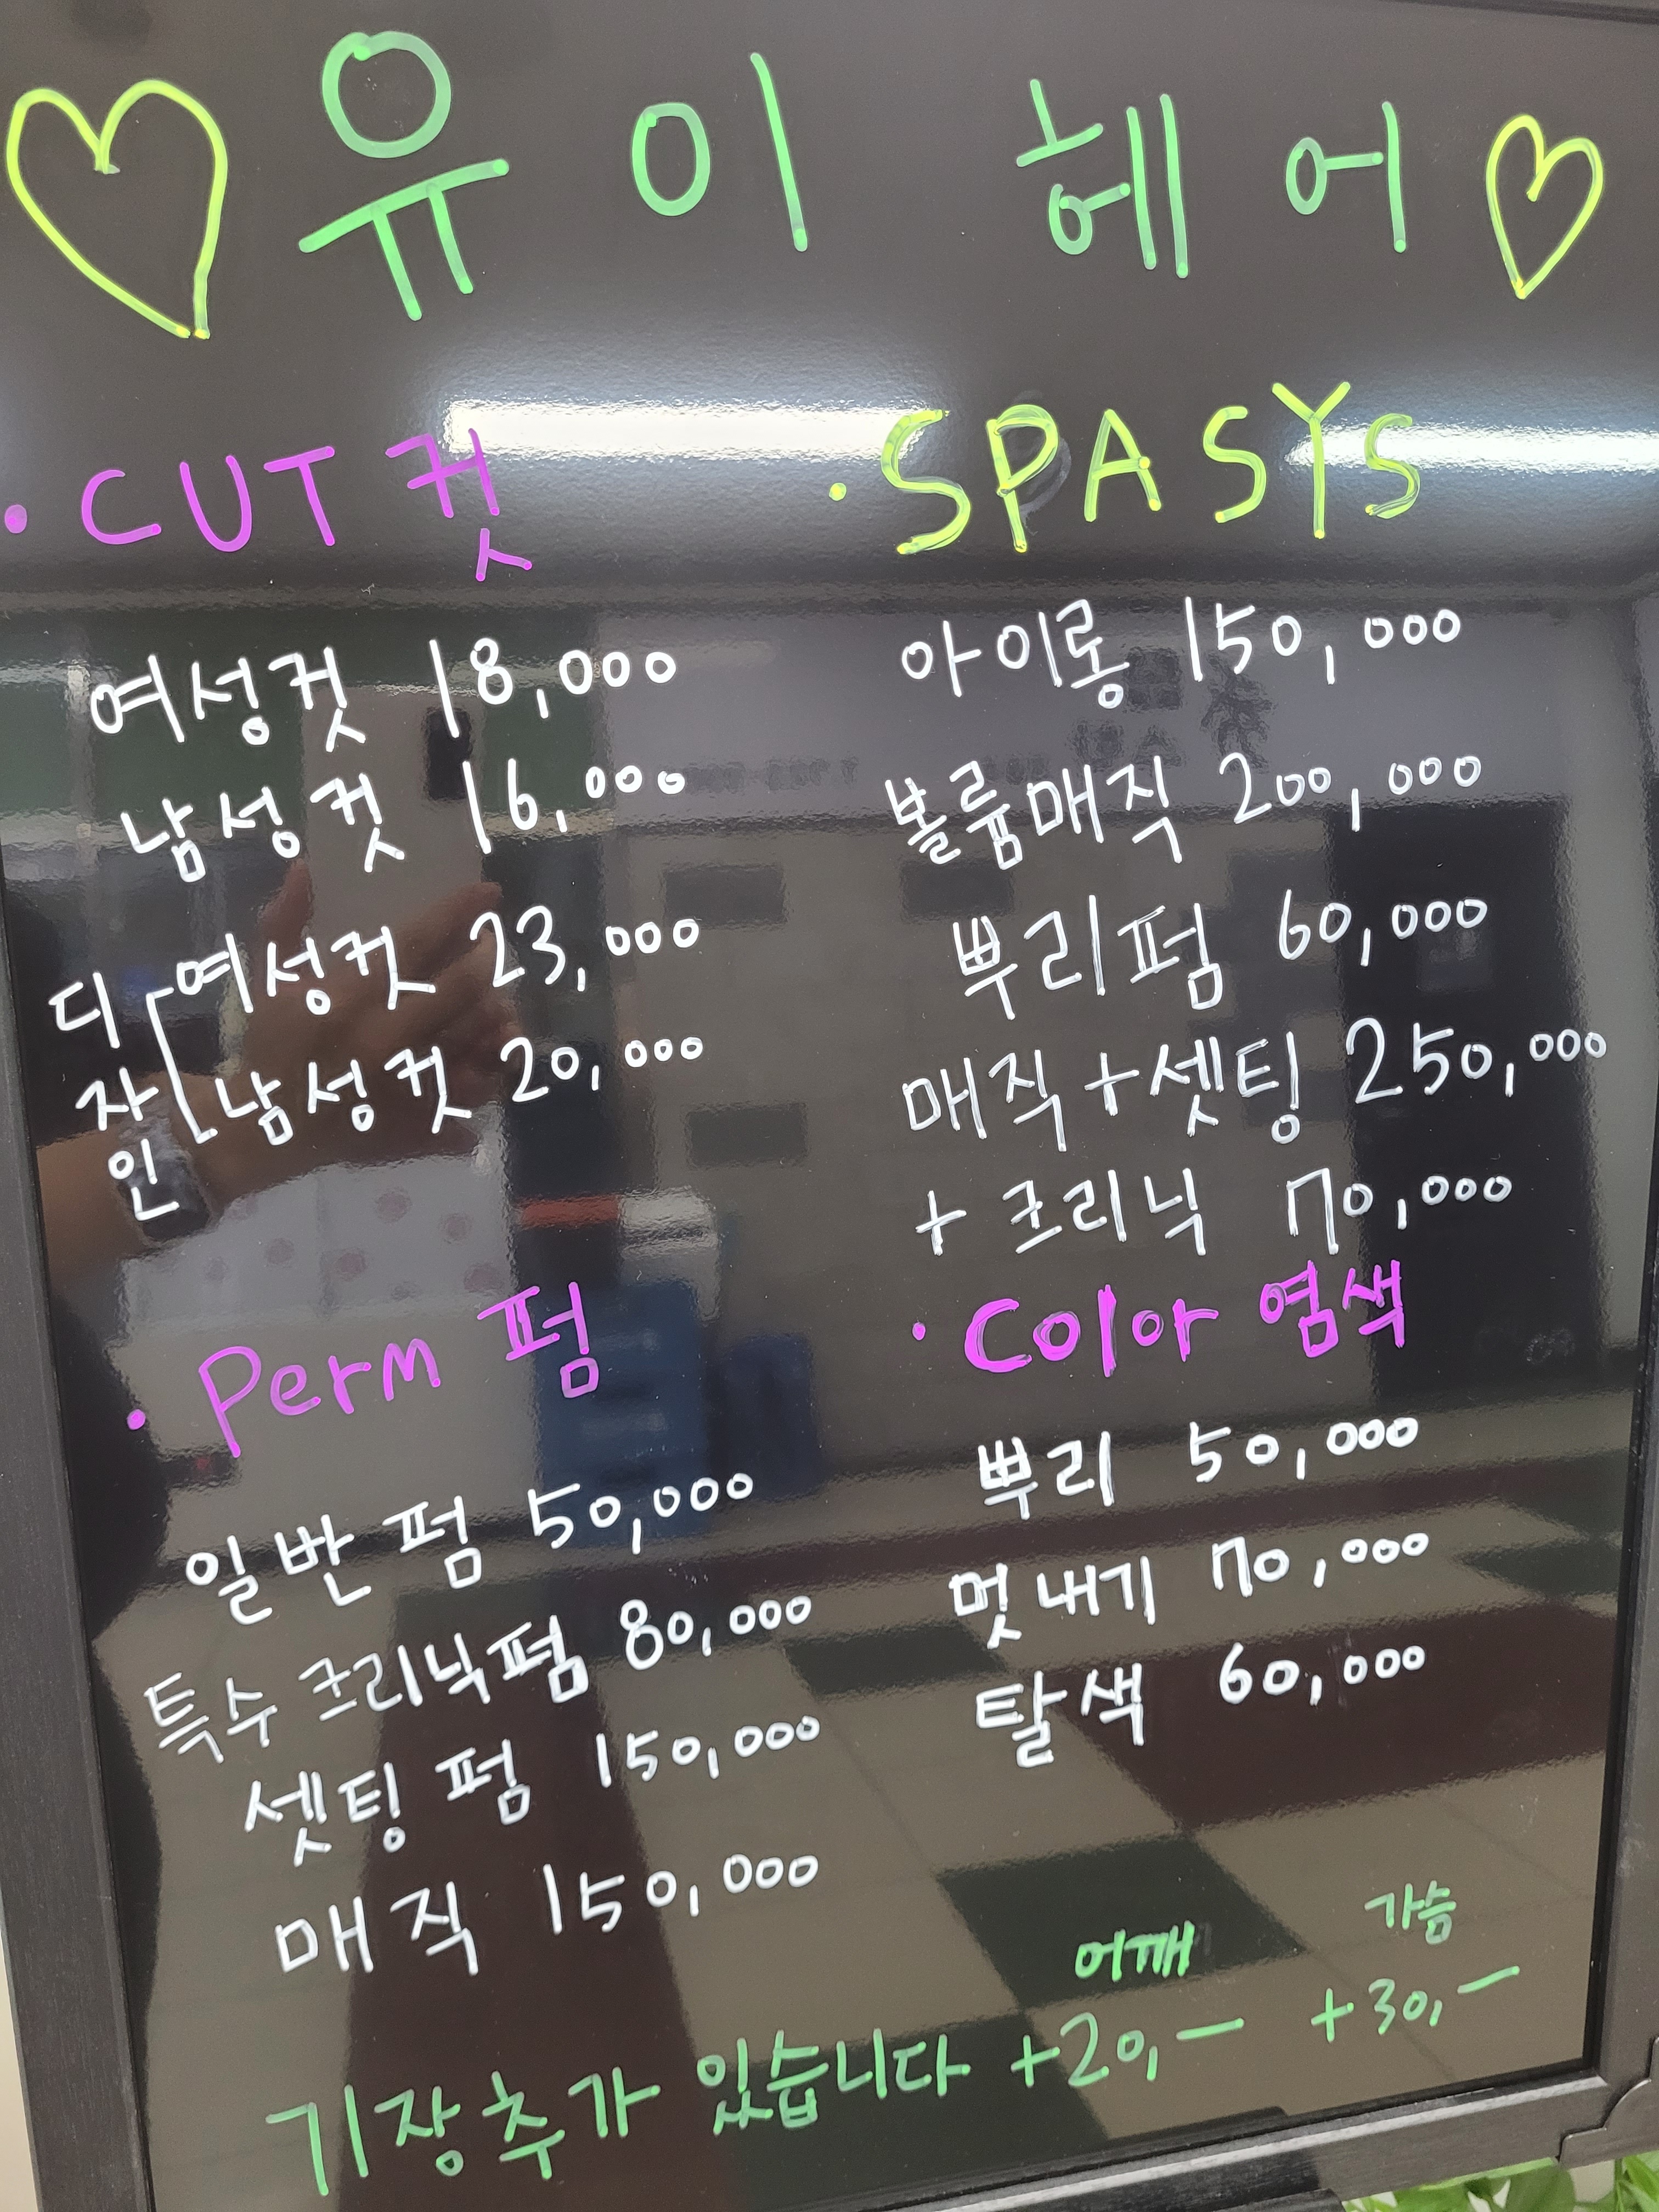 유이 헤어
·CUT 컷
여성컷 18,000
남성컷 16,000
디자인
여성컷 23,000
남성컷 20,000
·Perm 펌
일반펌 50,000
특수크리닉펌 80,000
셋팅펌 150,000
매직 150,000
·SPASYS
아이롱 150,000
볼륨매직 200,000
뿌리펌 60,000
매직+셋팅 250,000
+크리닉 70,000
·Color 염색
뿌리 50,000
멋내기 70,000
탈색 60,000
어깨 가슴
기장추가 있습니다 +20,- +30,-